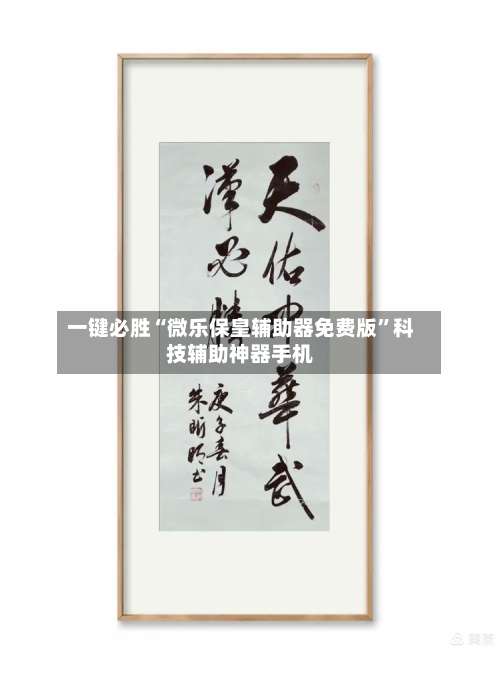 天佑中華武
漢必勝
庚子春月
朱昕明书
一键必胜“微乐保皇辅助器免费版”科
技辅助神器手机